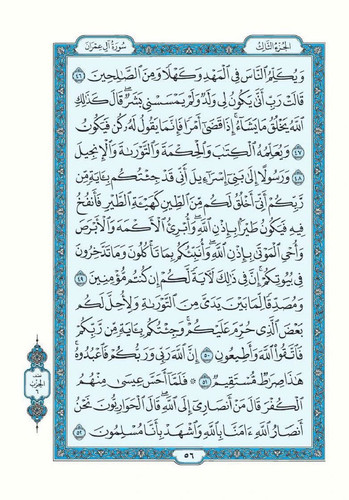 سُورَةُ آلِ عِمْرَانَ
الجُزْءُ الثَّالِثُ
وَيُكَلِّمُ ٱلنَّاسَ فِى ٱلْمَهْدِ وَكَهْلًا وَمِنَ ٱلصَّٰلِحِينَ ٤٦
قَالَتْ رَبِّ أَنَّىٰ يَكُونُ لِى وَلَدٌ وَلَمْ يَمْسَسْنِى بَشَرٌ ۖ قَالَ كَذَٰلِكِ
ٱللَّهُ يَخْلُقُ مَا يَشَآءُ ۚ إِذَا قَضَىٰٓ أَمْرًا فَإِنَّمَا يَقُولُ لَهُۥ كُن فَيَكُونُ
٤٧ وَيُعَلِّمُهُ ٱلْكِتَٰبَ وَٱلْحِكْمَةَ وَٱلتَّوْرَىٰةَ وَٱلْإِنجِيلَ
٤٨ وَرَسُولًا إِلَىٰ بَنِىٓ إِسْرَٰٓءِيلَ أَنِّى قَدْ جِئْتُكُم بِـَٔايَةٍ مِّن
رَّبِّكُمْ ۖ أَنِّىٓ أَخْلُقُ لَكُم مِّنَ ٱلطِّينِ كَهَيْـَٔةِ ٱلطَّيْرِ فَأَنفُخُ
فِيهِ فَيَكُونُ طَيْرًۢا بِإِذْنِ ٱللَّهِ ۖ وَأُبْرِئُ ٱلْأَكْمَهَ وَٱلْأَبْرَصَ
وَأُحْىِ ٱلْمَوْتَىٰ بِإِذْنِ ٱللَّهِ ۖ وَأُنَبِّئُكُم بِمَا تَأْكُلُونَ وَمَا تَدَّخِرُونَ
فِى بُيُوتِكُمْ ۚ إِنَّ فِى ذَٰلِكَ لَـَٔايَةً لَّكُمْ إِن كُنتُم مُّؤْمِنِينَ ٤٩
وَمُصَدِّقًا لِّمَا بَيْنَ يَدَىَّ مِنَ ٱلتَّوْرَىٰةِ وَلِأُحِلَّ لَكُم
بَعْضَ ٱلَّذِى حُرِّمَ عَلَيْكُمْ ۚ وَجِئْتُكُم بِـَٔايَةٍ مِّن رَّبِّكُمْ
فَٱتَّقُوا۟ ٱللَّهَ وَأَطِيعُونِ ٥٠ إِنَّ ٱللَّهَ رَبِّى وَرَبُّكُمْ فَٱعْبُدُوهُ ۗ
هَٰذَا صِرَٰطٌ مُّسْتَقِيمٌ ٥١ ۞ فَلَمَّآ أَحَسَّ عِيسَىٰ مِنْهُمُ
ٱلْكُفْرَ قَالَ مَنْ أَنصَارِىٓ إِلَى ٱللَّهِ ۖ قَالَ ٱلْحَوَارِيُّونَ نَحْنُ
أَنصَارُ ٱللَّهِ ءَامَنَّا بِٱللَّهِ وَٱشْهَدْ بِأَنَّا مُسْلِمُونَ ٥٢
نصف
الحزب
٦
٥٦